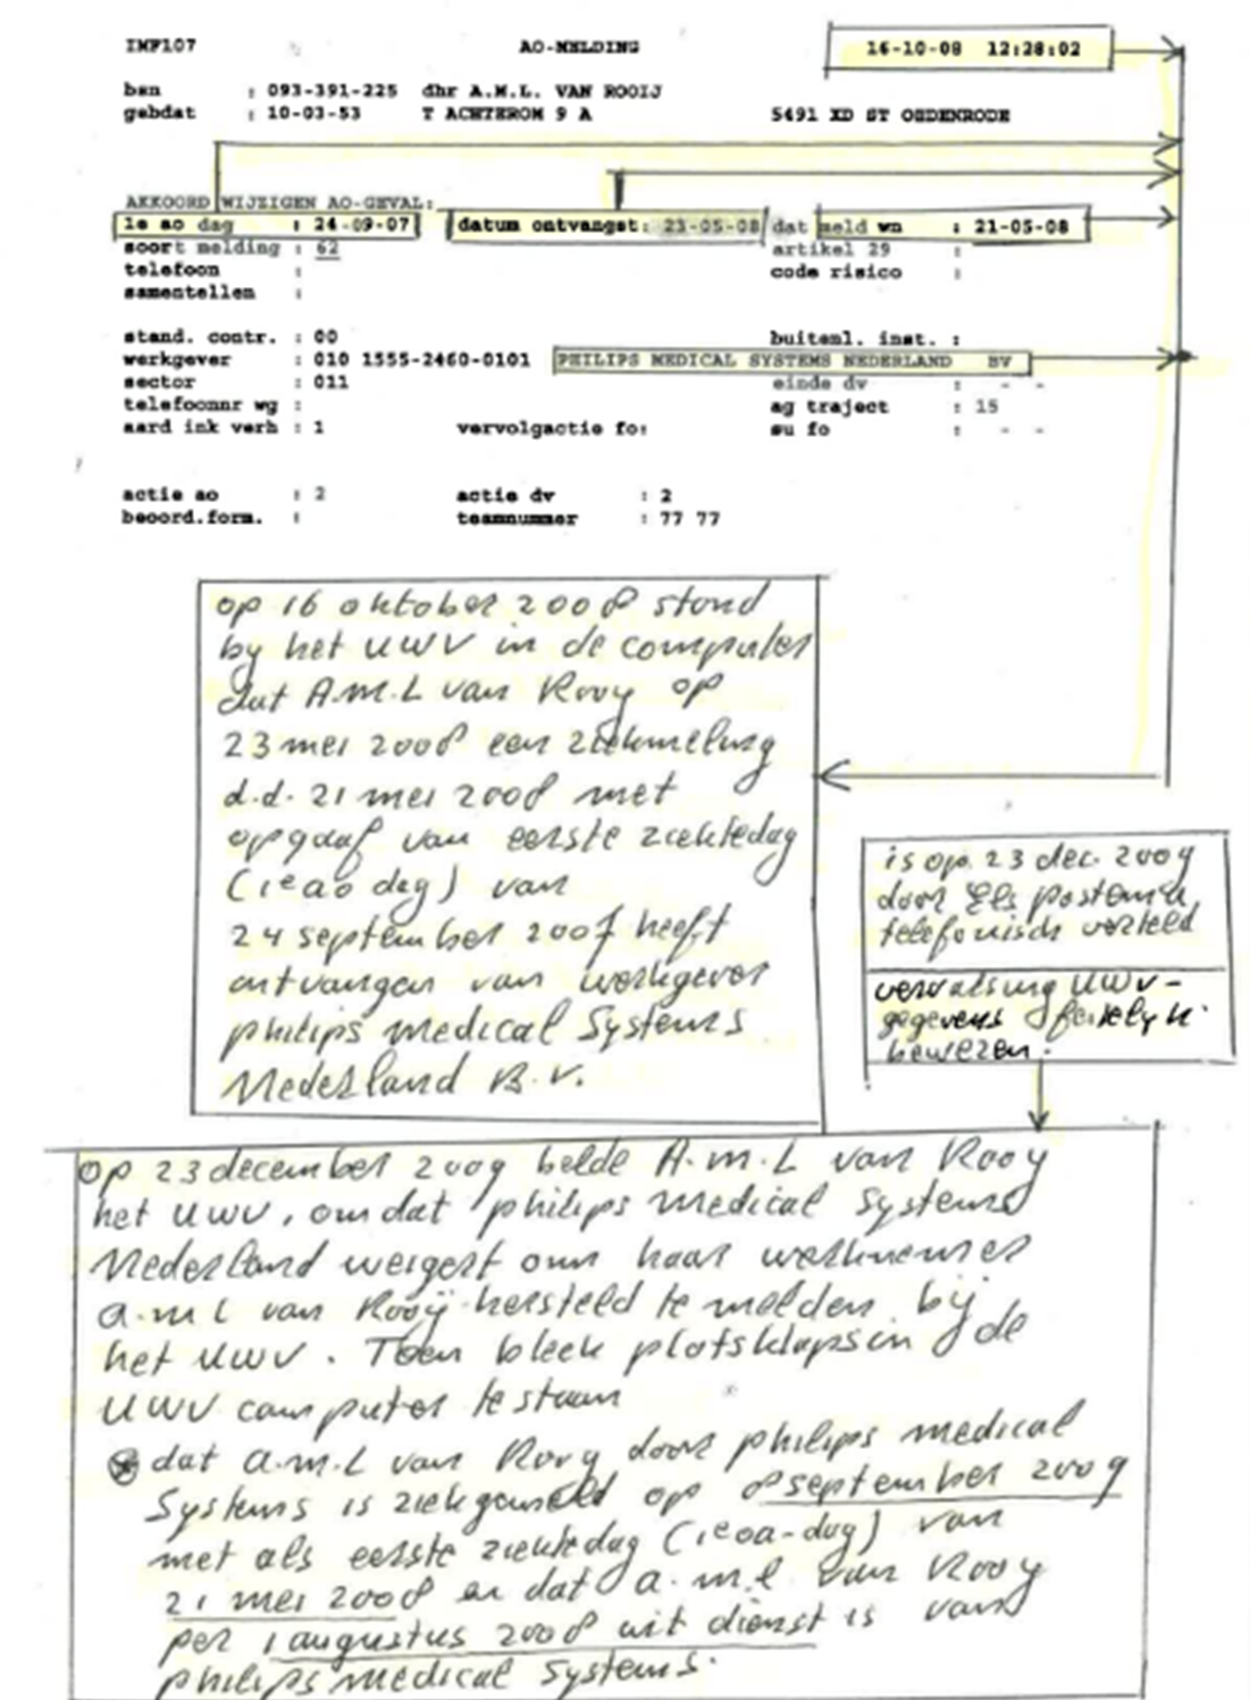 IMF107 AO-MELDING 16-10-08 12:28:02
bsn : 093-391-225 dhr A.M.L. VAN ROOIJ
gebdat : 10-03-53 T ACHTEROM 9 A 5491 XD ST OEDENRODE
AKKOORD WIJZIGEN AO-GEVAL:
1e ao dag : 24-09-07 datum ontvangst: 23-05-08 dat meld wn : 21-05-08
soort melding : 62 artikel 29 :
telefoon : code risico :
samentellen :
stand. contr. : 00 buitenl. inst. :
werkgever : 010 1555-2460-0101 PHILIPS MEDICAL SYSTEMS NEDERLAND BV
sector : 011 einde dv : - -
telefoonnr wg : ag traject : 15
aard ink verh : 1 vervolgactie fo: su fo : - -
actie ao : 2 actie dv : 2
beoord.form. : teamnummer : 77 77
op 16 oktober 2008 stond
by het UWV in de computer
dat A.M.L van Rooy op
23 mei 2008 een ziekmelding
d.d. 21 mei 2008 met
opgaaf van eerste ziektedag
(1e ao dag) van
24 september 2007 heeft
ontvangen van werkgever
philips Medical Systems
Nederland B.V.
is op 23 dec. 2009
door Els Postema
telefonisch verteld
vervalsing UWV-
gegevens feitelijk
bewezen.
op 23 december 2009 belde A.M.L van Rooy
het UWV, omdat philips Medical Systems
Nederland weigert om haar werknemer
a.m.l van Rooÿ hersteld te melden bij
het UWV. Toen bleek plotsklaps in de
UWV computer te staan
dat a.m.L van Rooy door philips medical
Systems is ziekgemeld op 8 september 2009
met als eerste ziektedag (1e oa-dag) van
21 mei 2008 en dat a.m.l van Rooy
per 1 augustus 2008 uit dienst is van
philips Medical Systems.